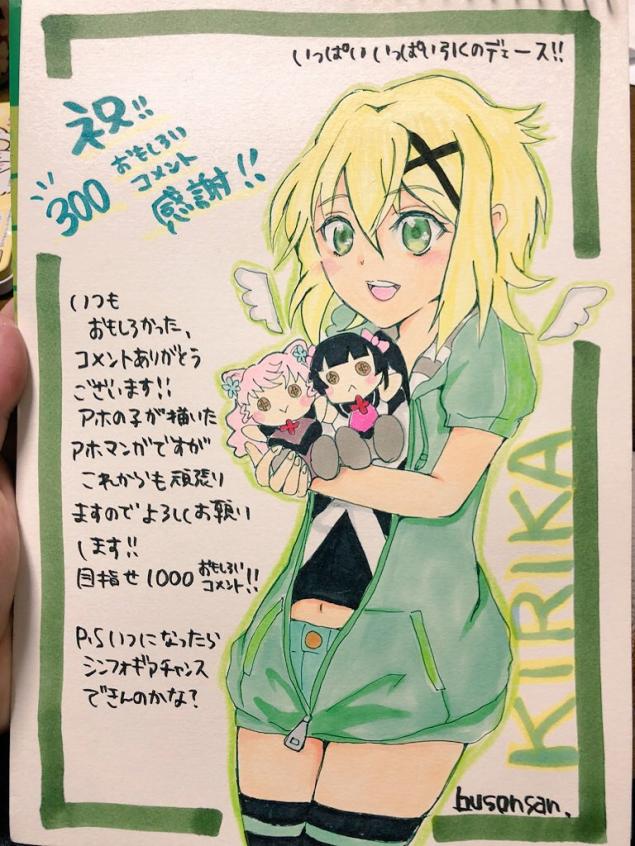 いっぱいいっぱい引くのデェース!!
祝!!
300 おもしろい
コメント
感謝!!
いつも
おもしろかった、
コメントありがとう
ございます!!
アホの子が描いた
アホマンガですが
これからも頑張り
ますのでよろしくお願い
します!!
目指せ1000 おもしろい
コメント!!
P.Sいつになったら
シンフォギアチャンス
できんのかな?
KIRIKA
busonsan.